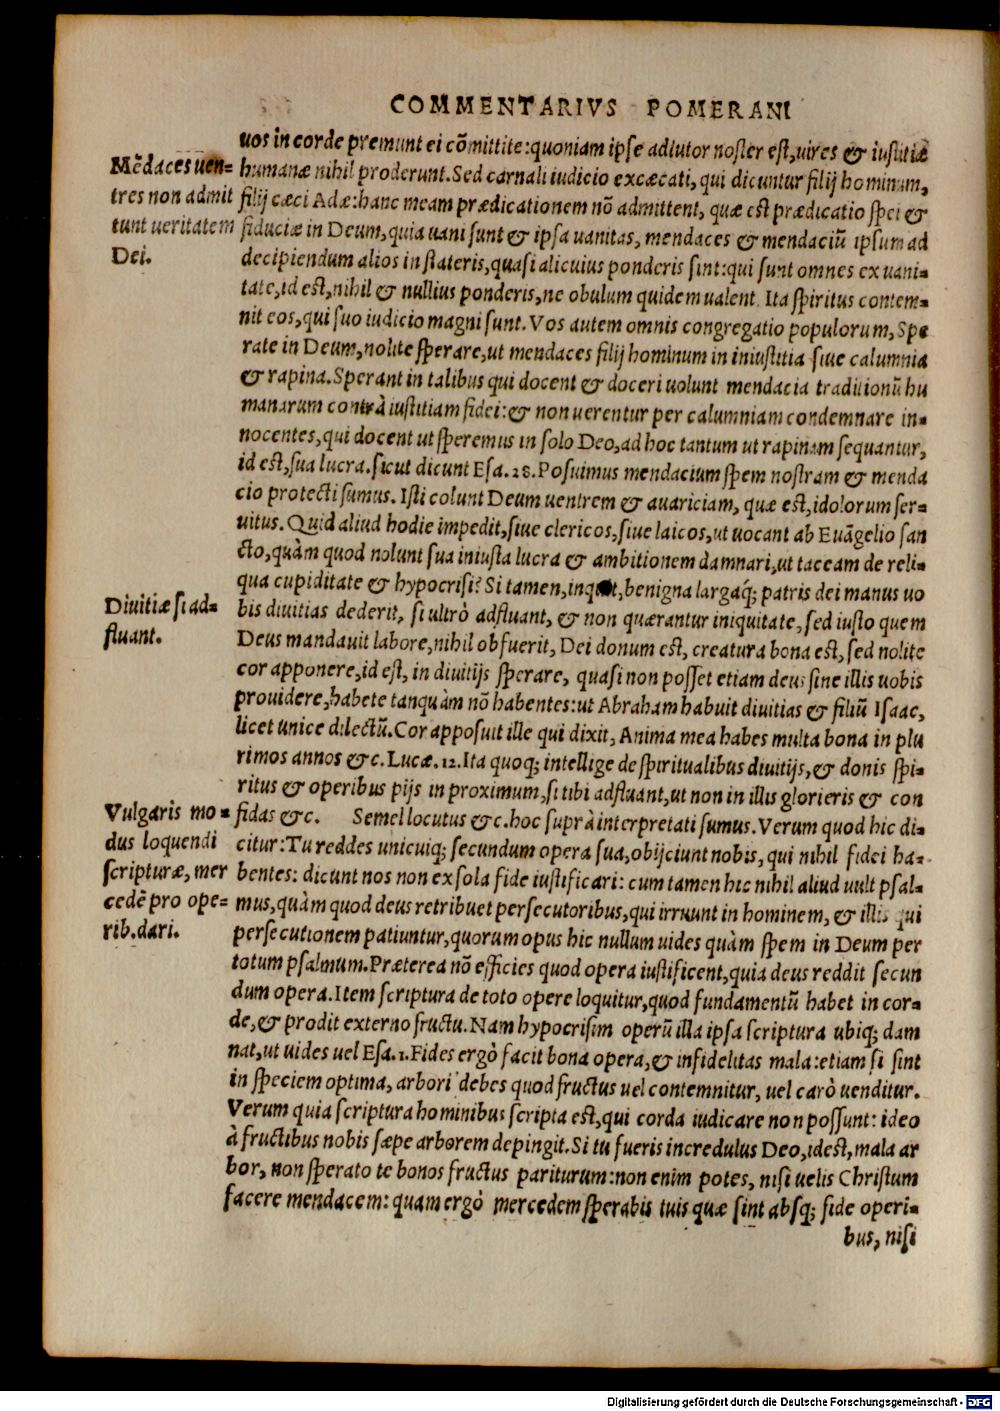 COMMENTARIVS POMERANI
uos in corde premunt ei cõmittite: quoniam ipse adiutor noster est, uires & iustitiæ
humanæ nihil proderunt. Sed carnali iudicio excæcati, qui dicuntur filij hominum,
filij cæci Adæ: hanc meam prædicationem nõ admittent, quæ est prædicatio spei &
fiduciæ in Deum, quia uani sunt & ipsa uanitas, mendaces & mendaciũ ipsum ad
decipiendum alios in stateris, quasi alicuius ponderis sint: qui sunt omnes ex uani-
tate, id est, nihil & nullius ponderis, ne obulum quidem ualent. Ita spiritus contem-
nit eos, qui suo iudicio magni sunt. Vos autem omnis congregatio populorum, Spe
rate in Deum, nolite sperare, ut mendaces filij hominum in iniustitia siue calumnia
& rapina. Sperant in talibus qui docent & doceri uolunt mendacia traditionũ hu
manarum contrà iustitiam fidei: & non uerentur per calumniam condemnare in-
nocentes, qui docent ut speremus in solo Deo, ad hoc tantum ut rapinam sequantur,
id est, sua lucra. sicut dicunt Esa. 28. Posuimus mendacium spem nostram & menda
cio protecti sumus. Isti colunt Deum uentrem & auariciam, quæ est, idolorum ser-
uitus. Quid aliud hodie impedit, siue clericos, siue laicos, ut uocant ab Euãgelio san
cto, quàm quod nolunt sua iniusta lucra & ambitionem damnari, ut taceam de reli-
qua cupiditate & hypocrisi? Si tamen, inquit, benigna largaq́; patris dei manus uo
bis diuitias dederit, si ultrò adfluant, & non quærantur iniquitate, sed iusto quem
Deus mandauit labore, nihil obfuerit, Dei donum est, creatura bona est, sed nolite
cor apponere, id est, in diuitijs sperare, quasi non posset etiam deus sine illis uobis
prouidere, habete tanquàm nõ habentes: ut Abraham habuit diuitias & filiũ Isaac,
licet unice dilectũ. Cor apposuit ille qui dixit, Anima mea habes multa bona in plu
rimos annos &c. Lucæ. 12. Ita quoq; intellige de spiritualibus diuitijs, & donis spi-
ritus & operibus pijs in proximum, si tibi adfluant, ut non in illis glorieris & con
fidas &c. Semel locutus &c. hoc suprà interpretati sumus. Verum quod hic di-
citur: Tu reddes unicuiq; secundum opera sua, obijciunt nobis, qui nihil fidei ha-
bentes: dicunt nos non ex sola fide iustificari: cum tamen hic nihil aliud uult psal-
mus, quàm quod deus retribuet persecutoribus, qui irruunt in hominem, & illis qui
persecutionem patiuntur, quorum opus hic nullum uides quàm spem in Deum per
totum psalmum. Præterea nõ efficies quod opera iustificent, quia deus reddit secun
dum opera. Item scriptura de toto opere loquitur, quod fundamentũ habet in cor-
de, & prodit externo fructu. Nam hypocrisim operũ illa ipsa scriptura ubiq; dam
nat, ut uides uel Esa. 1. Fides ergò facit bona opera, & infidelitas mala: etiam si sint
in speciem optima, arbori debes quod fructus uel contemnitur, uel carò uenditur.
Verum quia scriptura hominibus scripta est, qui corda iudicare non possunt: ideo
à fructibus nobis sæpe arborem depingit. Si tu fueris incredulus Deo, idest, mala ar
bor, non sperato te bonos fructus pariturum: non enim potes, nisi uelis Christum
facere mendacem: quam ergò mercedem sperabis tuis quæ sint absq; fide operi-
bus, nisi
Mẽdaces uen-
tres non admit
tunt ueritatem
Dei.
Diuitiæ si ad-
fluant.
Vulgaris mo-
dus loquendi
scripturæ, mer
cedẽ pro ope-
rib. dari.
Digitalisierung gefördert durch die Deutsche Forschungsgemeinschaft - DFG